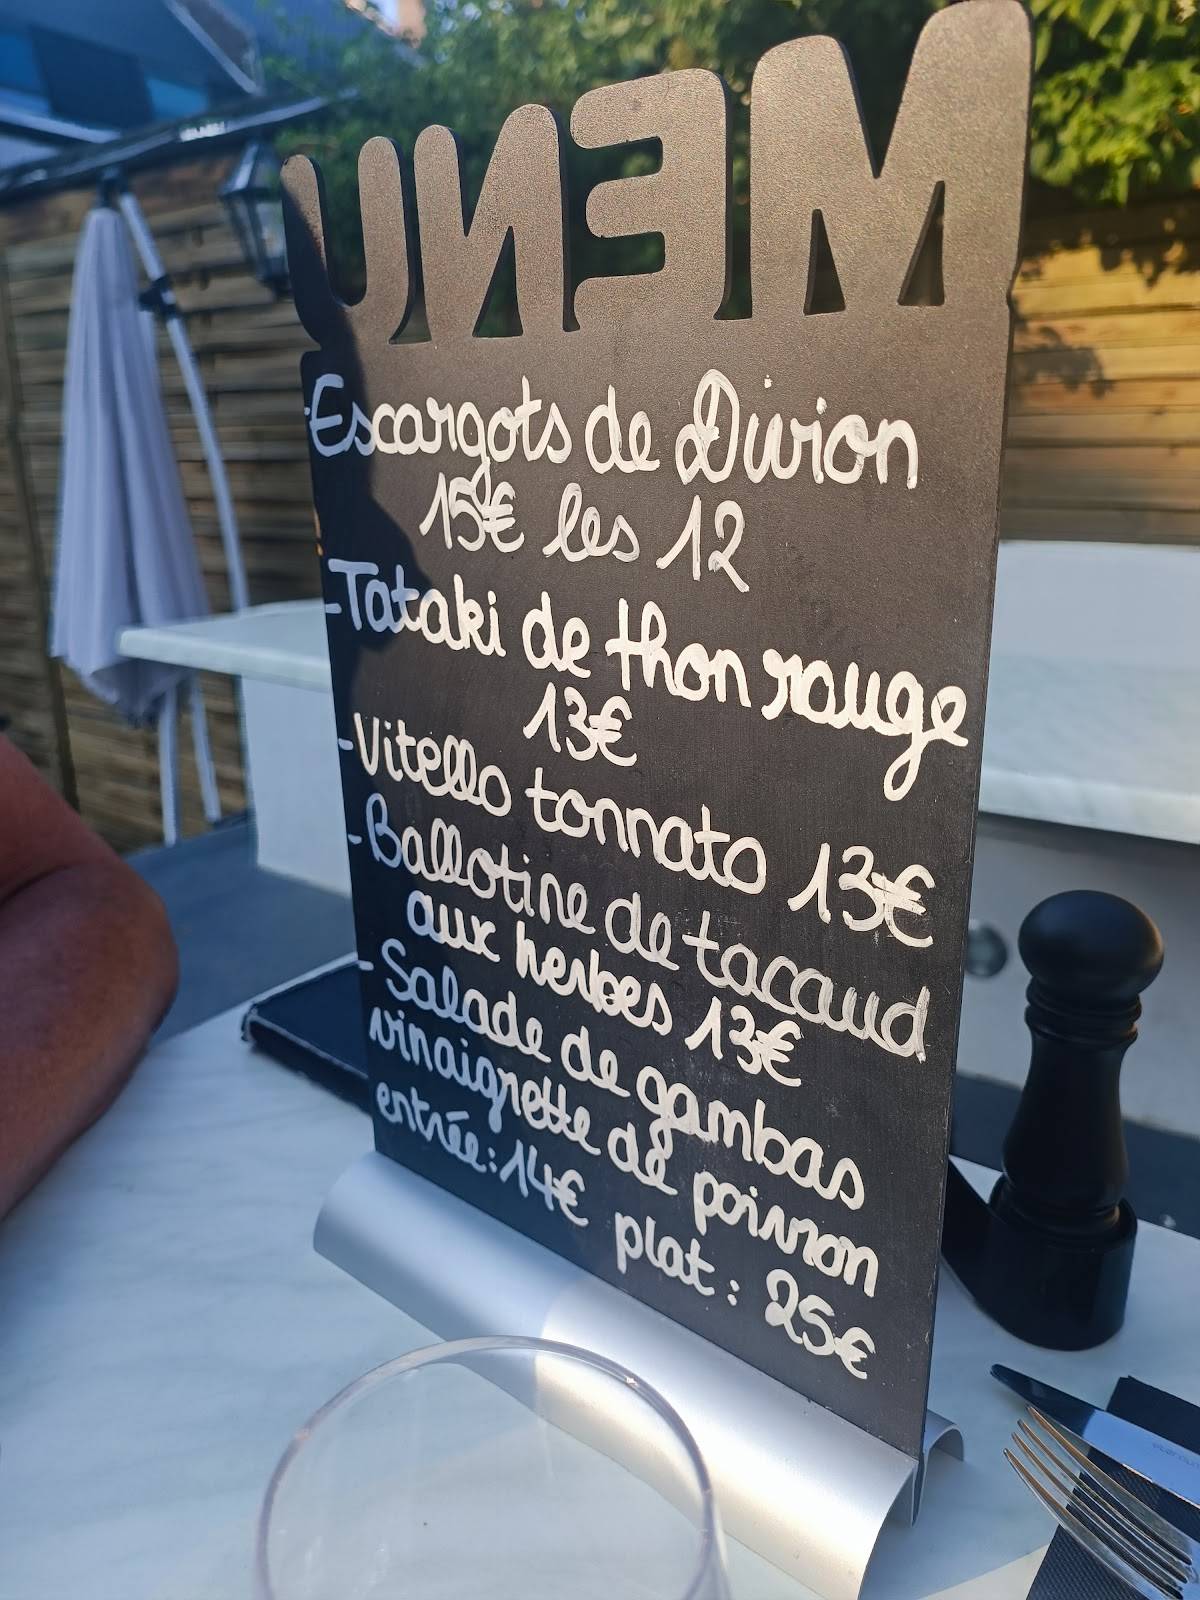 MENU
-Escargots de Divion
15€ les 12
-Tataki de thon rouge
13€
-Vitello tonnato 13€
-Ballotine de tacaud
aux herbes 13€
-Salade de gambas
vinaigrette de poivron
entrée: 14€ plat: 25€